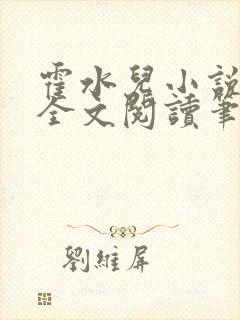 霍水兒小說
全文閱讀筆
劉維屏